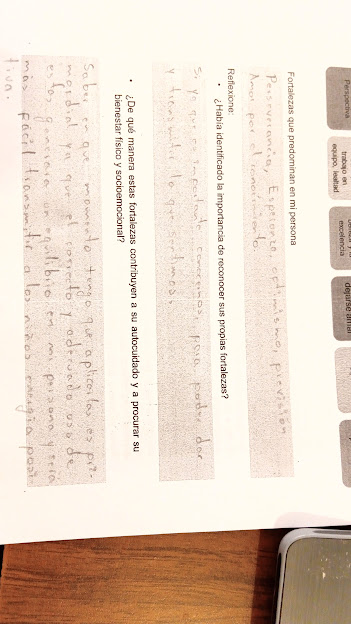 Perspectiva
trabajo en
equipo, lealtad
excelencia
dejarse amar
Fortalezas que predominan en mi persona
Perseverancia, Esperanza optimismo, previsión
Amor por el conocimiento
Reflexione:
• ¿Había identificado la importancia de reconocer sus propias fortalezas?
Si ya que es importante conocernos, para poder dar
y transmitir lo que sentimos.
• ¿De qué manera estas fortalezas contribuyen a su autocuidado y a procurar su
bienestar físico y socioemocional?
Saber en que momento tengo que aplicarlas es pri-
mordial y que el correcto y adecuado uso de
esto, generaría un equilibrio en mi persona y sería
más fácil transmitir a los niños energía posi-
tiva.